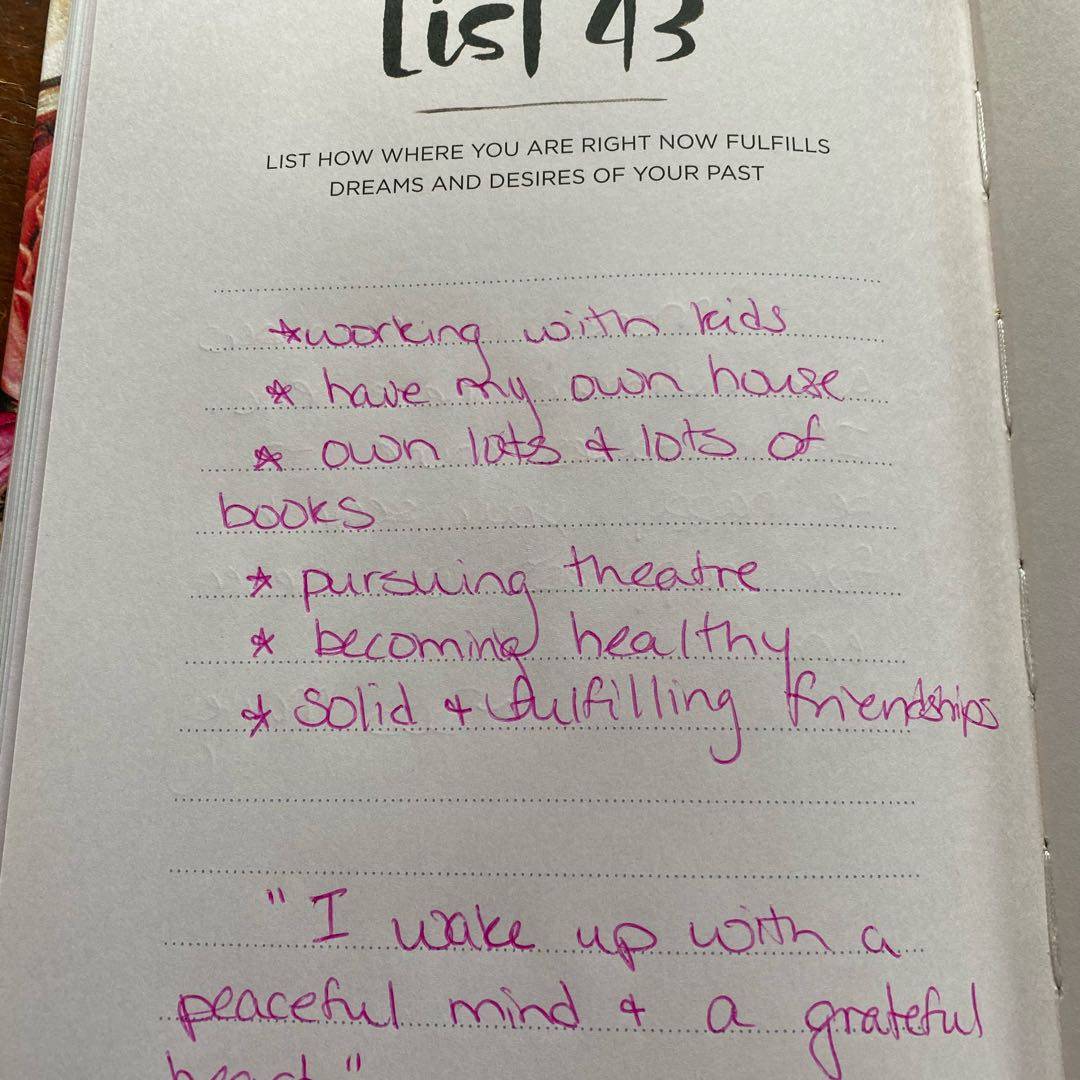 List 43
LIST HOW WHERE YOU ARE RIGHT NOW FULFILLS
DREAMS AND DESIRES OF YOUR PAST
*working with kids
* have my own house
* own lots & lots of
books
* pursuing theatre
* becoming healthy
* solid & fulfilling friendships
"I wake up with a
peaceful mind & a grateful
heart"